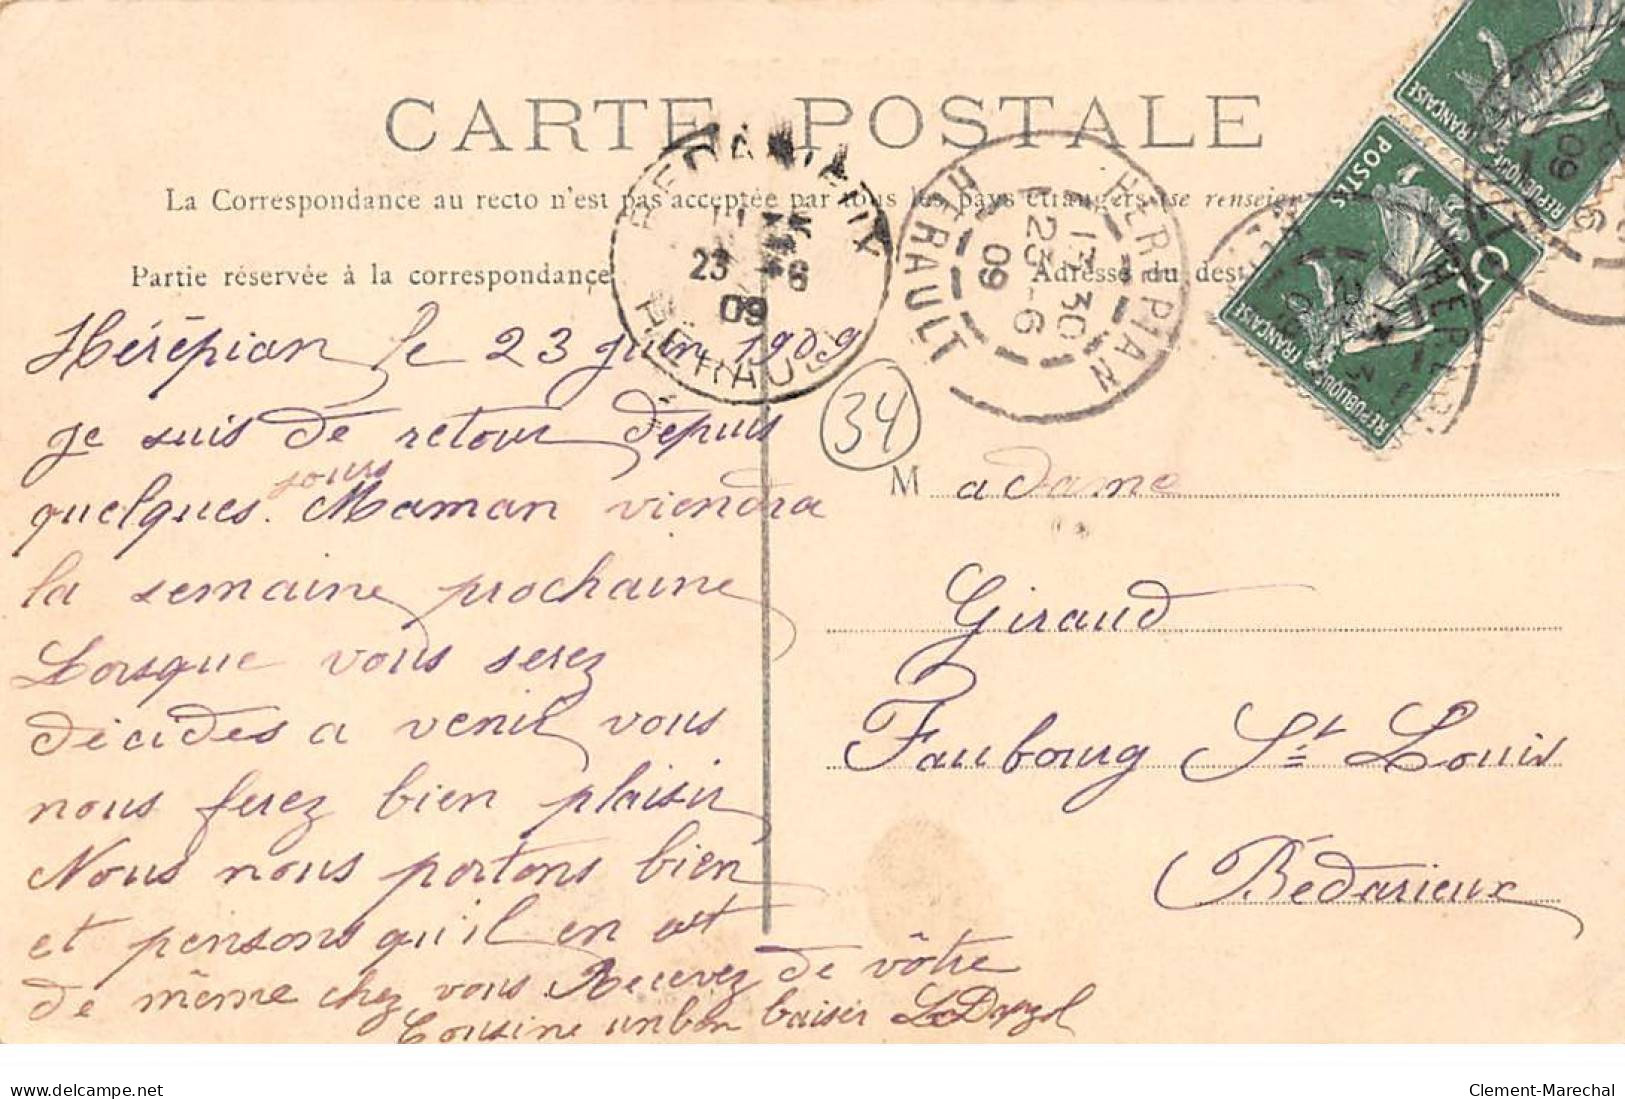 CARTE POSTALE
La Correspondance au recto n'est pas acceptée par tous les pays étrangers (se renseigner
Partie réservée à la correspondance
Adresse du dest
BEDARIEUX
23 6
09
HERAULT
HEREPIAN
17 30
23 -6
09
HERAULT
POSTES
REPUBLIQUE FRANÇAISE
5
REPUBLIQUE FRANÇAISE
09
34
Hérépian le 23 juin 1909
je suis de retour depuis
jours
quelques. Maman viendra
la semaine prochaine
Lorsque vous serez
décidés a venir vous
nous ferez bien plaisir
Nous nous portons bien
et pensons qu'il en est
de même chez vous. Recevez de vôtre
Cousine un bon baiser
Madame
Giraud
Faubourg St Louis
Bédarieux
delcampe.net
Clement-Marechal